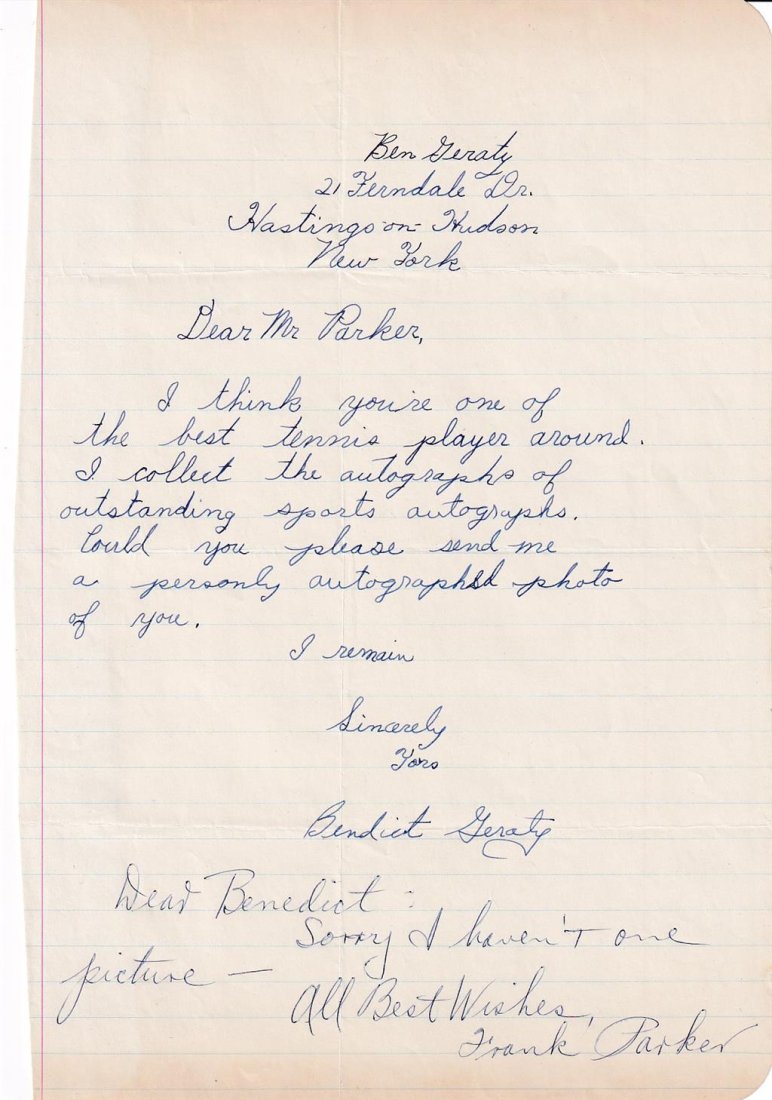 Ben Geraty
21 Ferndale Dr.
Hastings-on-Hudson
New York
Dear Mr Parker,
I think you're one of
the best tennis player around.
I collect the autographs of
outstanding sports autographs.
Could you please send me
a personly autographed photo
of you.
I remain
Sincerely
Yors
Bendict Geraty
Dear Benedict :
Sorry I haven't one
picture —
All Best Wishes,
Frank Parker